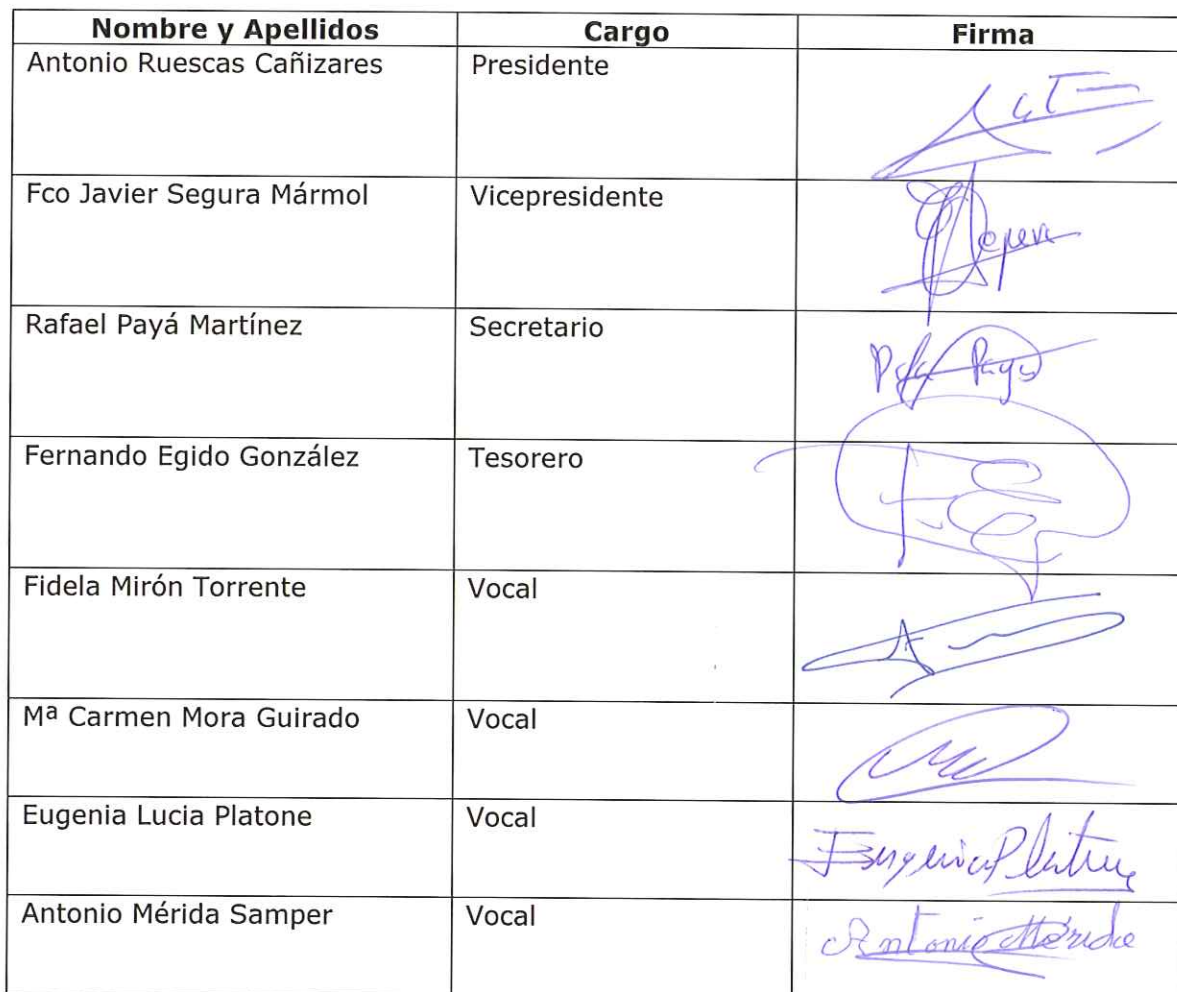 Nombre y Apellidos Cargo Firma
Antonio Ruescas Cañizares Presidente
Fco Javier Segura Mármol Vicepresidente
Rafael Payá Martínez Secretario
Rafa Payá
Fernando Egido González Tesorero
F.EG
Fidela Mirón Torrente Vocal
Mª Carmen Mora Guirado Vocal
Eugenia Lucia Platone Vocal
Eugenia Platone
Antonio Mérida Samper Vocal
Antonio Mérida